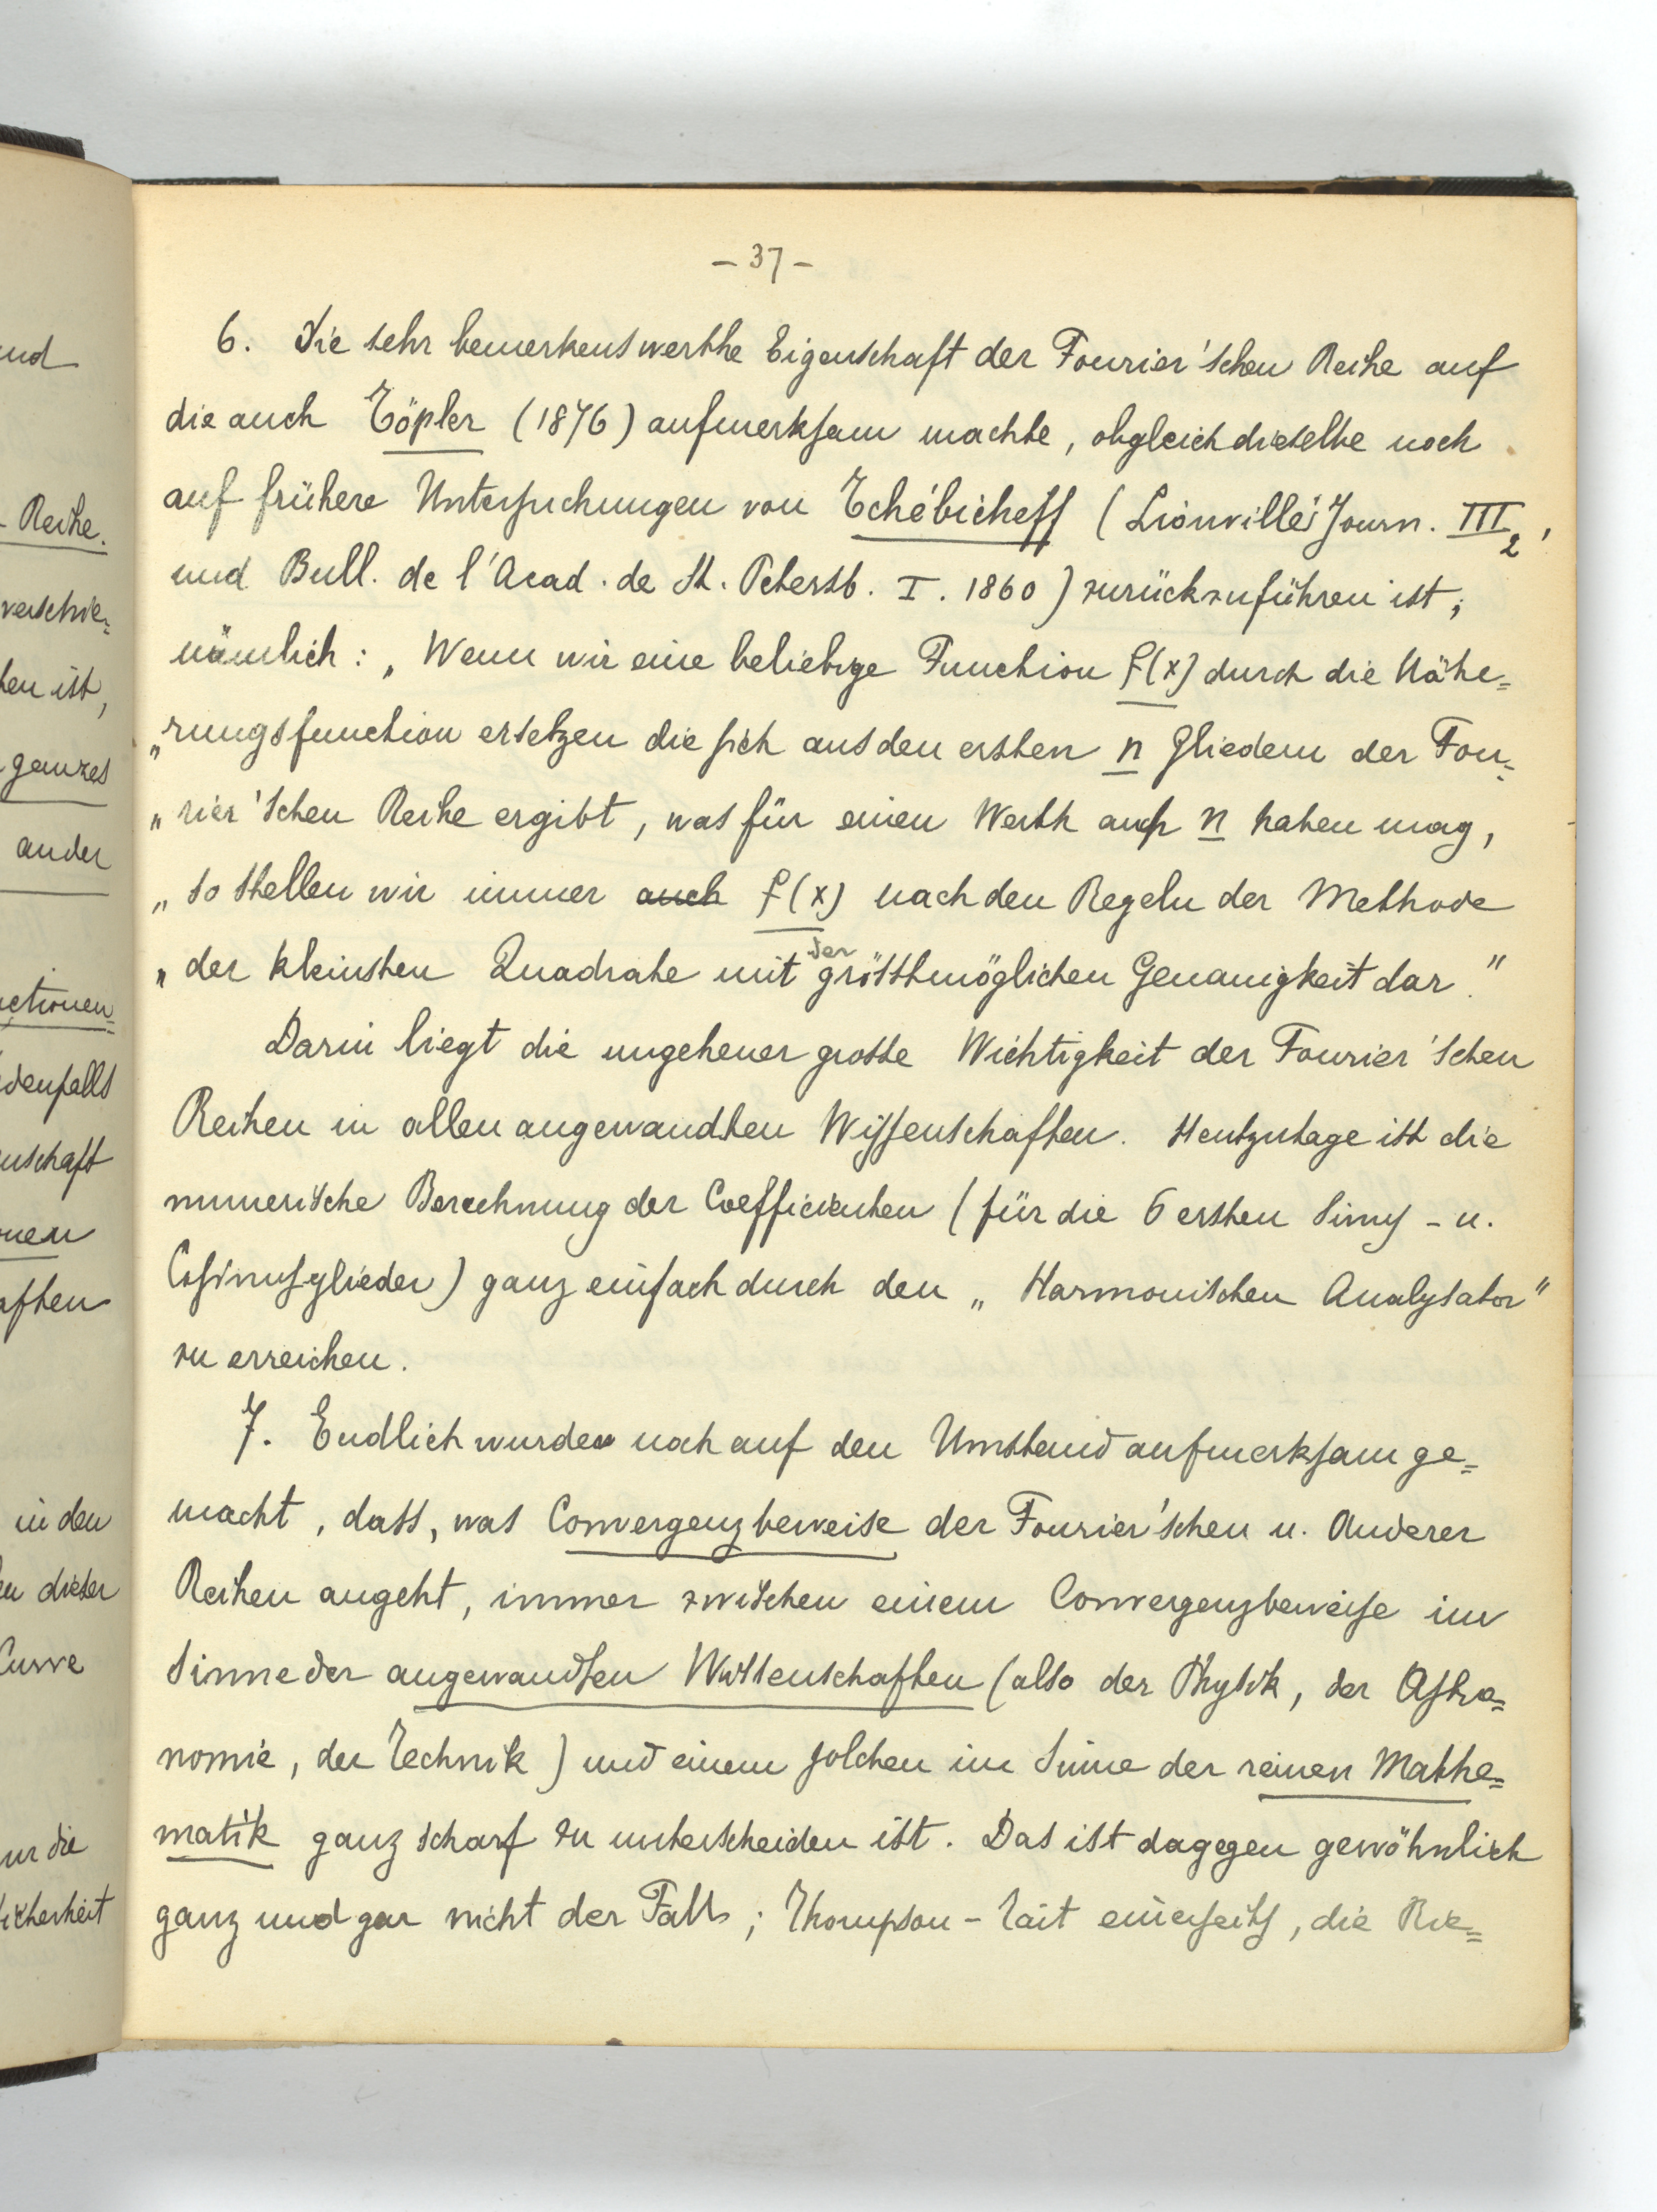 - 37 -
6. Die sehr bemerkenswerthe Eigenschaft der Fourier'schen Reihe auf
die auch Töpler (1876) aufmerksam machte, obgleich dieselbe noch
auf frühere Untersuchungen von Tchébicheff (Liouville's Journ. III₂,
und Bull. de l'Acad. de St. Petersb. I. 1860) zurückzuführen ist;
nämlich: „Wenn wir eine beliebige Function f(x) durch die Nähe=
„rungsfunction ersetzen die sich aus den ersten n Gliedern der Fou=
„rier'schen Reihe ergibt, was für einen Werth auch n haben mag,
„so stellen wir immer auch f(x) nach den Regeln der Methode
„der kleinsten Quadrate mit der grösstmöglichen Genauigkeit dar."
Darin liegt die ungeheuer grosse Wichtigkeit der Fourier'schen
Reihen in allen angewandten Wissenschaften. Heutzutage ist die
numerische Berechnung der Coefficienten (für die 6 ersten Sinus- u.
Cosinusglieder) ganz einfach durch den „Harmonischen Analysator"
zu erreichen.
7. Endlich wurde noch auf den Umstand aufmerksam ge=
macht, dass, was Convergenzbeweise der Fourier'schen u. Anderer
Reihen angeht, immer zwischen einem Convergenzbeweise im
Sinne der angewandten Wissenschaften (also der Physik, der Astro=
nomie, der Technik) und einem solchen im Sinne der reinen Mathe=
matik ganz scharf zu unterscheiden ist. Das ist dagegen gewöhnlich
ganz und gar nicht der Fall; Thompson-Tait einerseits, die Rie=
und
Reihe.
verschie=
ist,
ganzes
ander
ctionen=
denfalls
nschaft
nen
aften
in den
dieser
Curve
nur die
Sicherheit